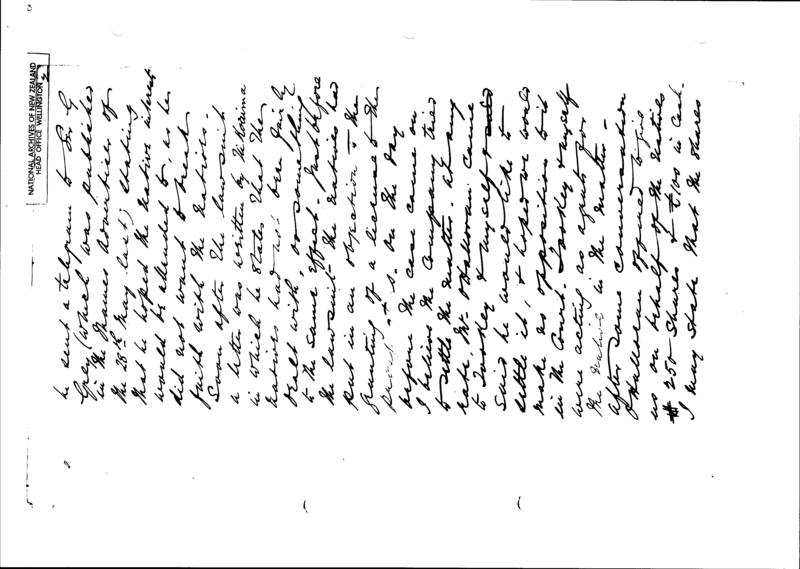 NATIONAL ARCHIVES OF NEW ZEALAND
HEAD OFFICE WELLINGTON
he sent a telegram to Sir G
Grey (which was published
in the Thames Advertiser of
the 28th May last) stating
that he hoped the Native interest
would be attended to, as he
did not want to break
faith with the Natives.
Soon after the lawsuit
a letter was written by
in which he states that the
natives had not been fairly
dealt with, or something
to the same effect. Just before
the lawsuit the Natives had
put in an objection to the
granting of a license to the
On the day
before the case came on
I believe the Company tried
to settle the matter. At any
rate, Mr. O'Halloran came
to Tookey & myself &
said he would like to
settle it, & hoped we would
make no opposition to it
in the Court. Tookey & myself
were acting as agents for
the Natives in the matter.
After some conversation
O'Halloran offered to give
us on behalf of the Natives
250 Shares & £100 in Cash.
I may state that the shares